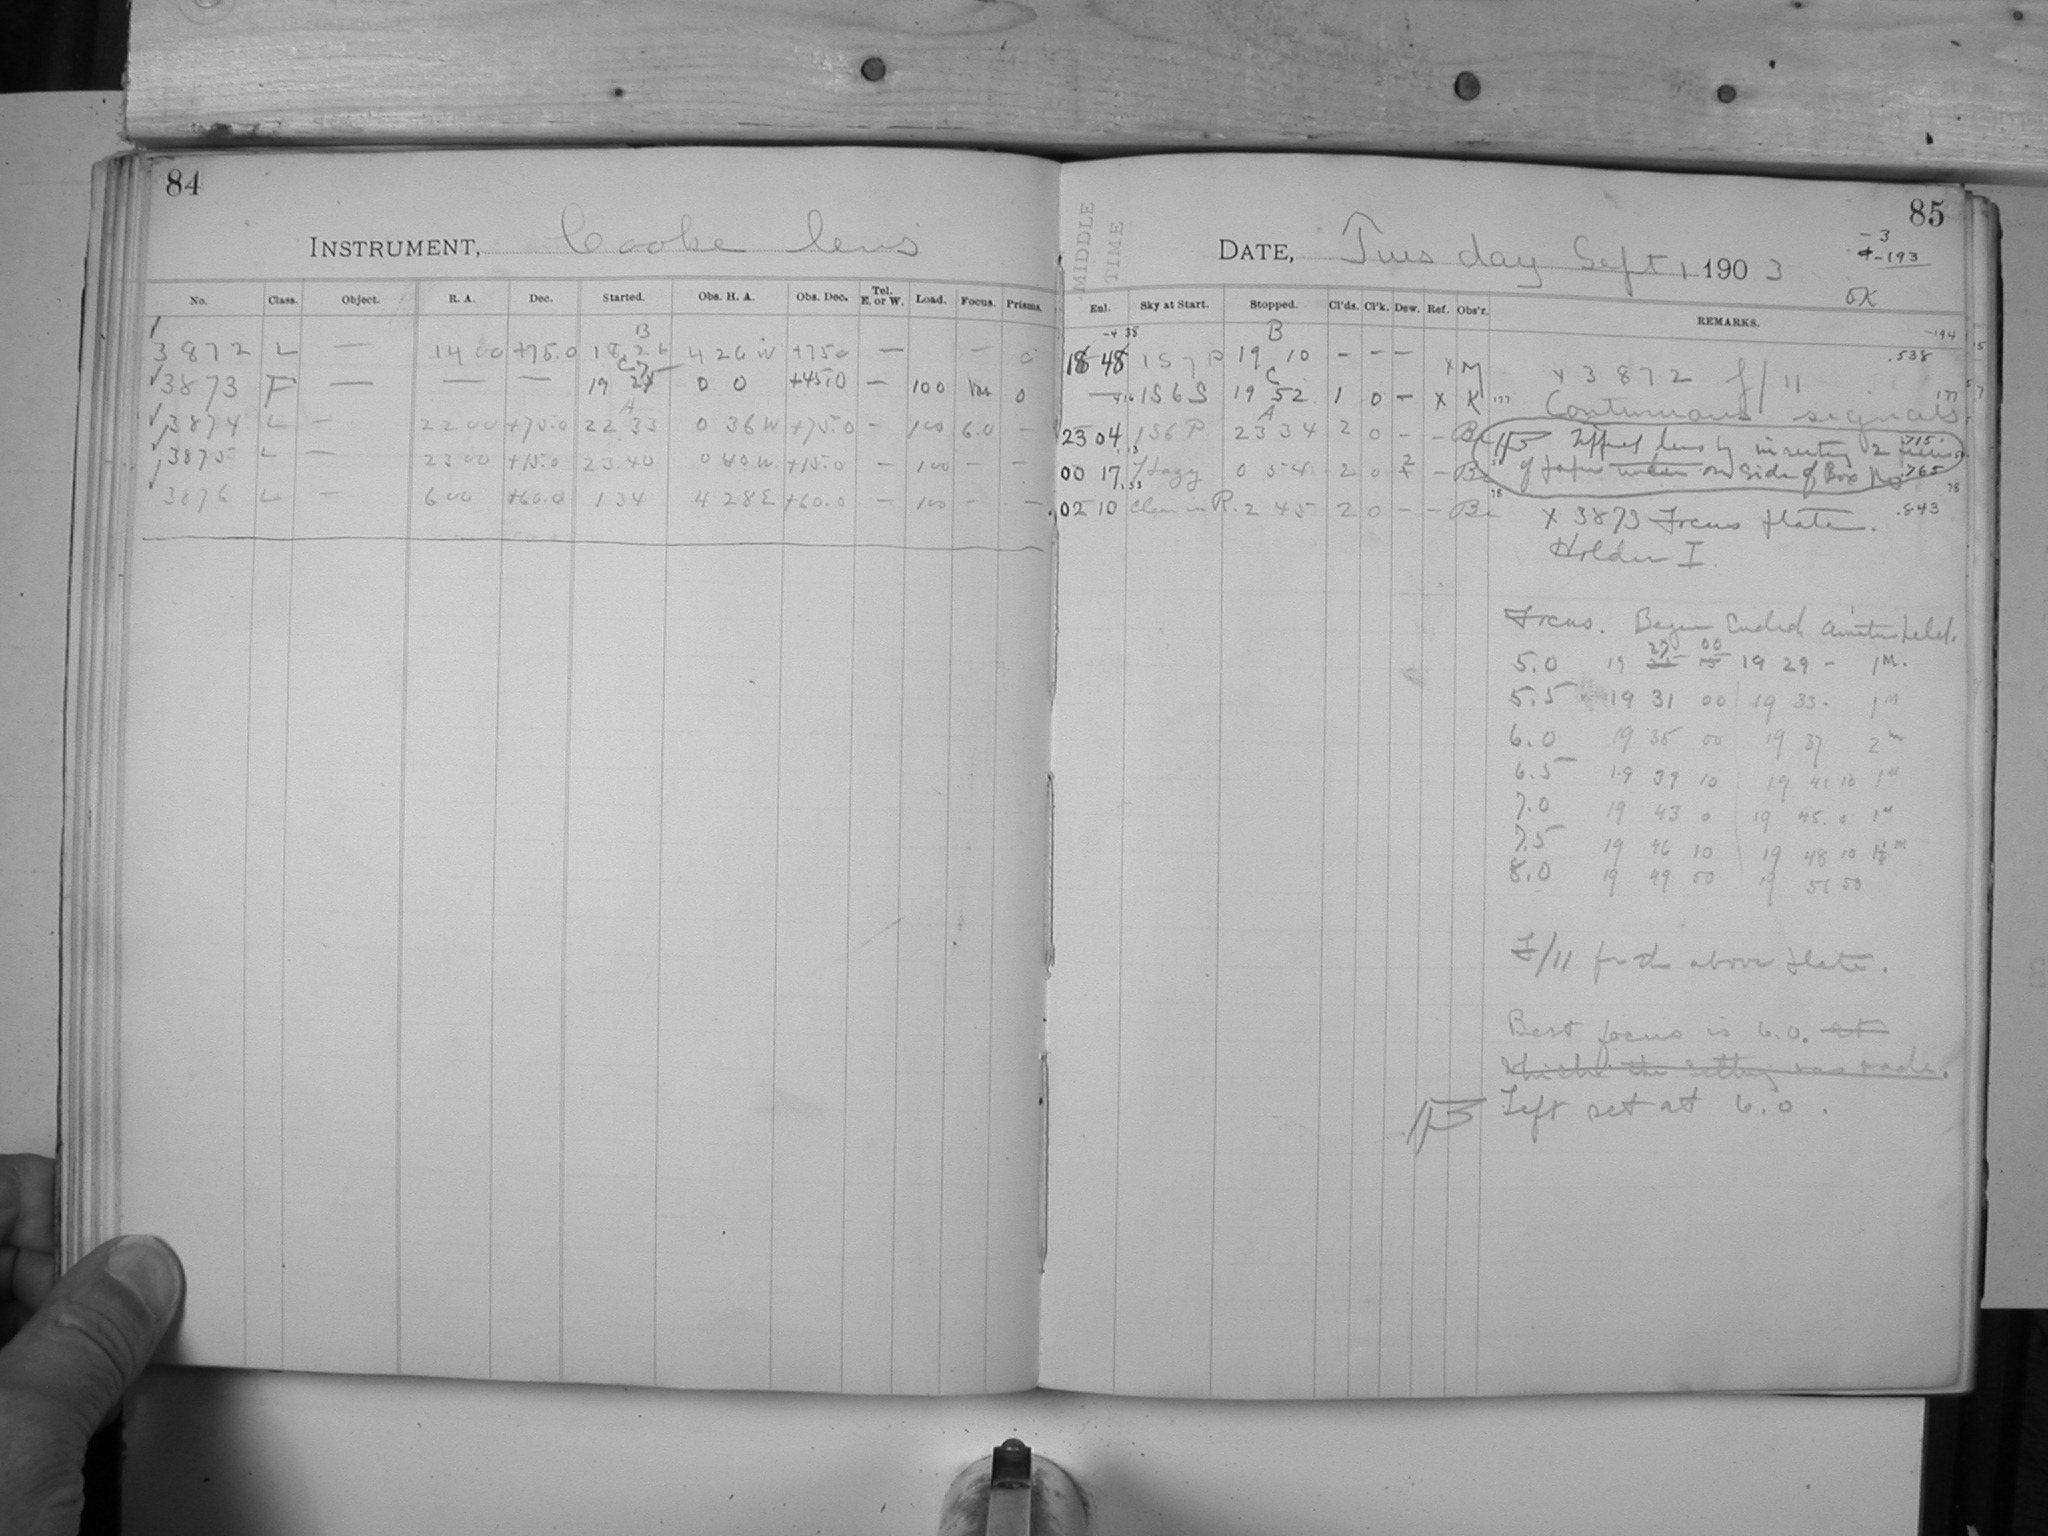 84
INSTRUMENT, Cooke lens
No. Class. Object. R. A. Dec. Started. Obs. H. A. Obs. Dec. Tel. E. or W. Load. Focus. Prisms.
3872 L — 14 00 +75.0 18 26 4 26 W +75.0 — — 0
3873 F — — — 19 0 0 +45.0 — 100 0
3874 L — 22 00 +75.0 22 33 0 36 W +75.0 — 100 6.0 —
3875 L — 23 00 +15.0 23 40 0 40 W +15.0 — 100 — —
3876 L — 6 00 +60.0 1 34 4 28 E +60.0 — 100 — —
85
MIDDLE TIME
DATE, Tuesday Sept 1 1903
-3
-193
OK
Enl. Sky at Start. Stopped. Cl'ds. Cl'k. Dew. Ref. Obs'r. REMARKS.
-194
18 48 1S7P B 19 10 — — — x M x 3872 f/11 .538
— 1S6S C 19 52 1 0 — x K Continuous signals
23 04 1S6P A 23 34 2 0 — — lens by inserting 2 .715
00 17 Hazy 0 54 2 0 — on side of Box .765
02 10 Clear in R. 2 45 2 0 — — .843
x 3873 Focus plate.
Holder I.
Focus. Began Ended
5.0 19 27 00 19 29 — 1 M.
5.5 19 31 00 19 33. 1 M
6.0 19 35 00 19 37 2 m
6.5 19 39 10 19 41 10 1 m
7.0 19 43 0 19 45 0 1 m
7.5 19 46 10 19 48 10 M
8.0 19 49 50 19 51 50
F/11 for the above plate.
Best focus is 6.0. at
which the setting was made.
Left set at 6.0.